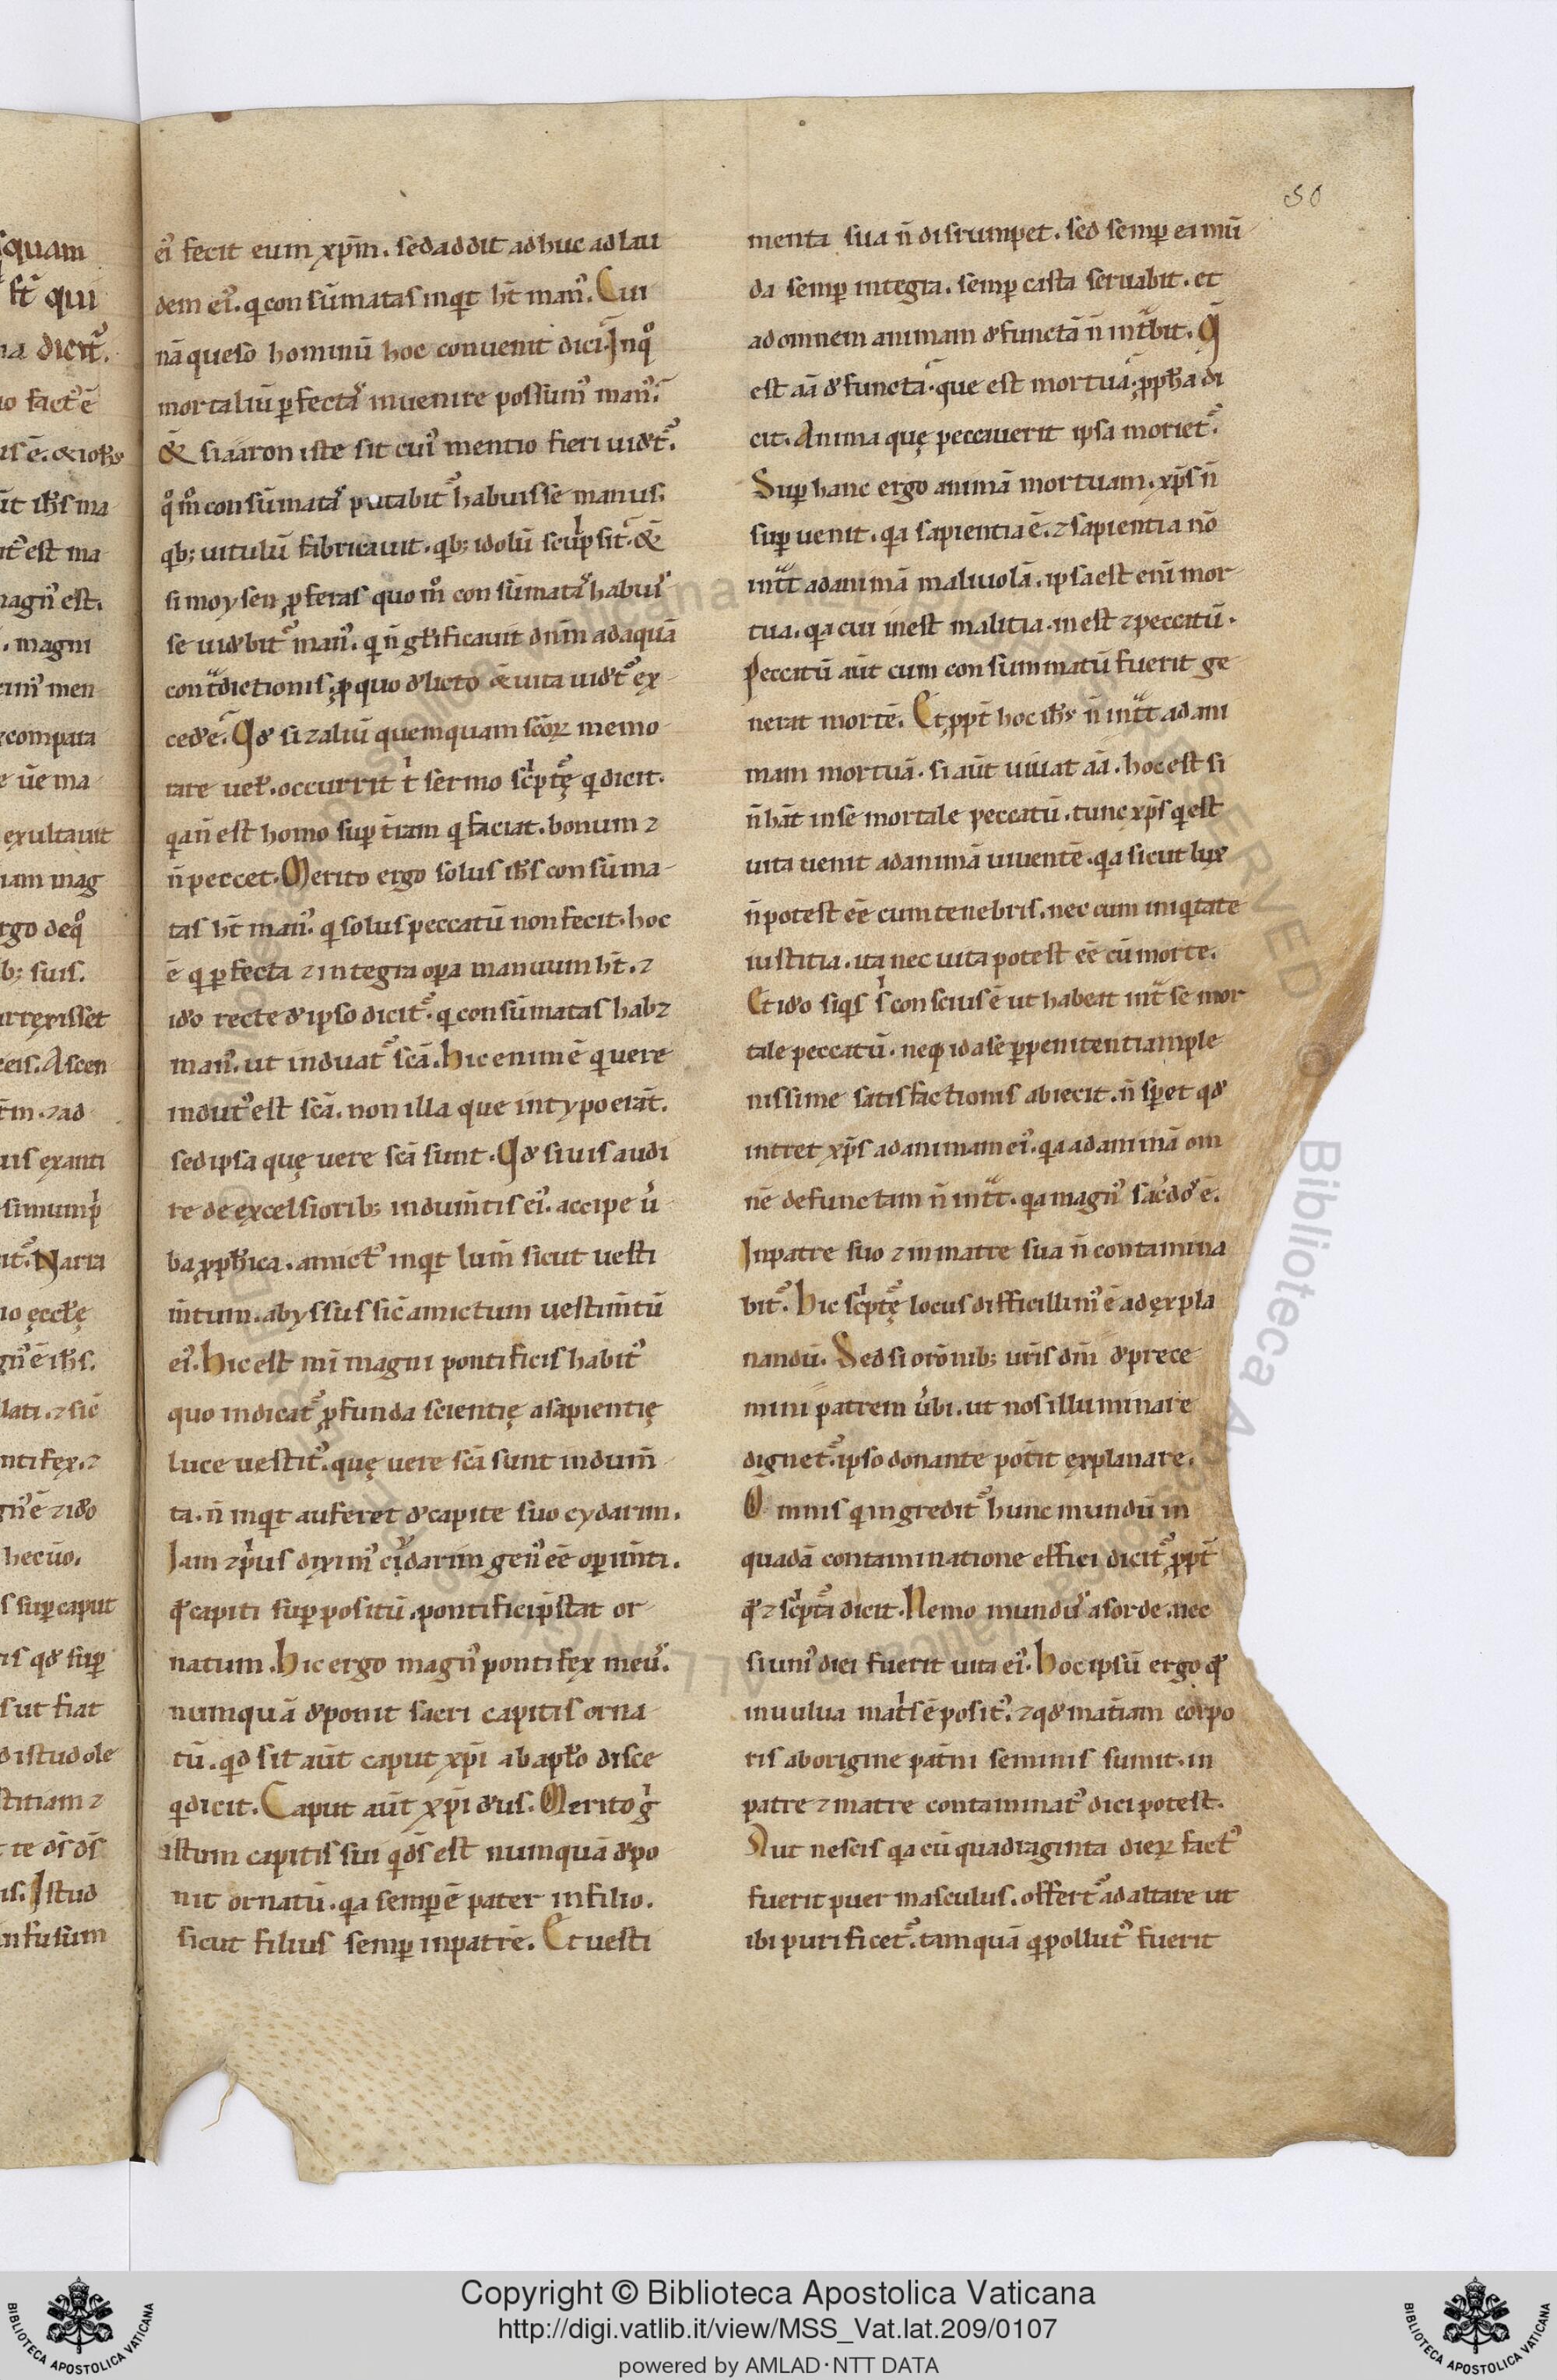 50
squam
st̄ qui
na dicit᷑.
io fact᷒ ē
us ē. & ioh̄s
ūt ih̄s ma
it᷒ est ma
magn᷒ est.
. magni
cini᷒ men
compara
e ūe ma
exultauit
iam mag
rgo deq̊
b; suis.
urrexisset
eis. Ascen
ir̄m. ⁊ ad
uis exanti
simump̄
it᷑. Naria
io ęccłę
gn᷒ ē ih̄s.
lati. ⁊ sic̄
ntifex. ⁊
gn᷒ ē ⁊ ido
hec ūo.
s sup̱ caput
ris qđ sup̱
s ut fiat
d istud ole
stitiam ⁊
t te ds̄ ds̄
us. Istud
infusum
ei᷒ fecit eum xp̄m. sed addit adhuc ad lau
dem ei᷒. q̄ consūmatas inq̄t ht̄ man᷒. Cui
nā queso hominū hoc conuenit dici. In q̊
mortaliū ꝑfectas inuenire possum᷒ man᷒.
& si aaron iste sit cui᷒ mentio fieri uidet᷑.
q̊m̊ consūmatas putabit᷑ habuisse manus.
qb; uitulū fabricauit. qb; idolū sculpsit. &
si moysen ꝓferas quom̊ consūmatas habuis
se uidebit᷑ man᷒. q̄ n̄ glīficauit dn̄m ad aquā
cont̄dictionis, ꝓ quo delicto & uita uidet᷑ ex
cedere. Qđ si ⁊ aliū quemquam scōꝝ memo
rare uel᷒. occurrit t̄ sermo sc̄ptę q̄ dicit.
q̄a n̄ est homo sup̱ t̄ram q̄ faciat. bonum ⁊
n̄ peccet. Merito ergo solus ih̄s consūma
tas ht̄ man᷒. q̄ solus peccatū non fecit. hoc
ē q̄ ꝑfecta ⁊ integra oꝑa manuum ht̄. ⁊
ido recte de ipso dicit᷑. q̄ consūmatas hab⁊
man᷒. ut induat᷑ scā. Hic enim ē q̄ uere
indut᷒ est scā. non illa que in typo erāt.
sed ipsa quę uere scā sunt. Qđ si uis audi
re de excelsiorib; indum̄tis ei᷒. accipe ū
ba ꝓph̄ica. amict᷒ inq̄t lum̄ sicut uesti
m̄tum. abyssus sic̄ amictum uestim̄tū
ei᷒. Hic est m̄ magni pontificis habit᷒
quo indicat᷑ ꝓfunda scientię a sapientię
luce uestit᷒. quę uere scā sunt indum̄
ta. n̄ inq̄t auferet de capite suo cydarim.
Iam ⁊ p̄us dixim᷒ cydarim gen᷒ eē oꝑim̄ti.
qđ capiti sup̱positū. pontifici p̄stat or
natum. Hic ergo magn᷒ pontifex meus.
numquā deponit sacri capitis orna
tū. qđ sit aūt caput xp̄i ab apl̄o disce
q̄ dicit. Caput aūt xp̄i deus. Merito g̊
istum capitis sui q̄ ds̄ est numquā depo
nit ornatū. q̄a semp̱ ē pater in filio.
sicut filius semp̱ in patre. Et uesti
menta sua n̄ disrumpet. sed semp̱ ea mū
da semp̱ integra. semp̱ casta seruabit. et
ad omnem animam defunctā n̄ int̄bit. Q̄
est aīa defuncta. que est mortua. ꝓph̄a di
cit. Anima quę peccauerit ipsa moriet᷑.
Sup̱ hanc ergo animā mortuam. xp̄s n̄
sup̱uenit. q̄a sapientia ē. ⁊ sapientia nō
int̄t ad animā maliuolā. ipsa est enī mor
tua. q̄a cui inest malitia. inest ⁊ peccatū.
Peccatū aūt cum consummatū fuerit ge
nerat mortē. Et ꝓpt̄ hoc ih̄s n̄ int̄t ad ani
mam mortuā. si aūt uiuat aīa. hoc est si
n̄ hāt in se mortale peccatū. tunc xp̄s q̄ est
uita uenit ad animā uiuentē. q̄a sicut lux
n̄ potest eē cum tenebris. nec cum iniq̄tate
iustitia. ita nec uita potest eē cū morte.
Et ido siq̄s s̄ conscius ē ut habeat int̄ se mor
tale peccatū. neq; id a se ꝑ penitentiam ple
nissime satisfactionis abiecit. n̄ speret qđ
intret xp̄s ad animam ei᷒. q̄a ad animā om
nē defunctam n̄ int̄t. q̄a magn᷒ sacerdos ē.
In patre suo ⁊ in matre sua n̄ contamina
bit᷑. Hic sc̄ptę locus difficillim᷒ ē ad expla
nandū. Sed si orōnib; ur̄is dn̄i deprece
mini patrem ūbi. ut nos illuminare
dignet᷑. ipso donante pot̄it explanare.
Omnis q̄ ingredit᷑ hunc mundū in
quadā contaminatione effici dicit᷑. ꝓpt̄
qđ ⁊ sc̄pta dicit. Nemo mundus a sorde. nec
si uni᷒ diei fuerit uita ei᷒. Hoc ipsū ergo qđ
in uulua mat̄s ē posit᷒. ⁊ qđ mat̄iam corpo
ris ab origine pat̄ni seminis sumit. in
patre ⁊ matre contaminat᷒ dici potest.
Aut nescis q̄a cū quadraginta dieꝝ fact᷒
fuerit puer masculus. offert᷑ ad altare ut
ibi purificet᷑. tamquā q̄ pollut᷒ fuerit
Copyright © Biblioteca Apostolica Vaticana
http://digi.vatlib.it/view/MSS_Vat.lat.209/0107
powered by AMLAD·NTT DATA
BIBLIOTECA APOSTOLICA VATICANA
BIBLIOTECA APOSTOLICA VATICANA